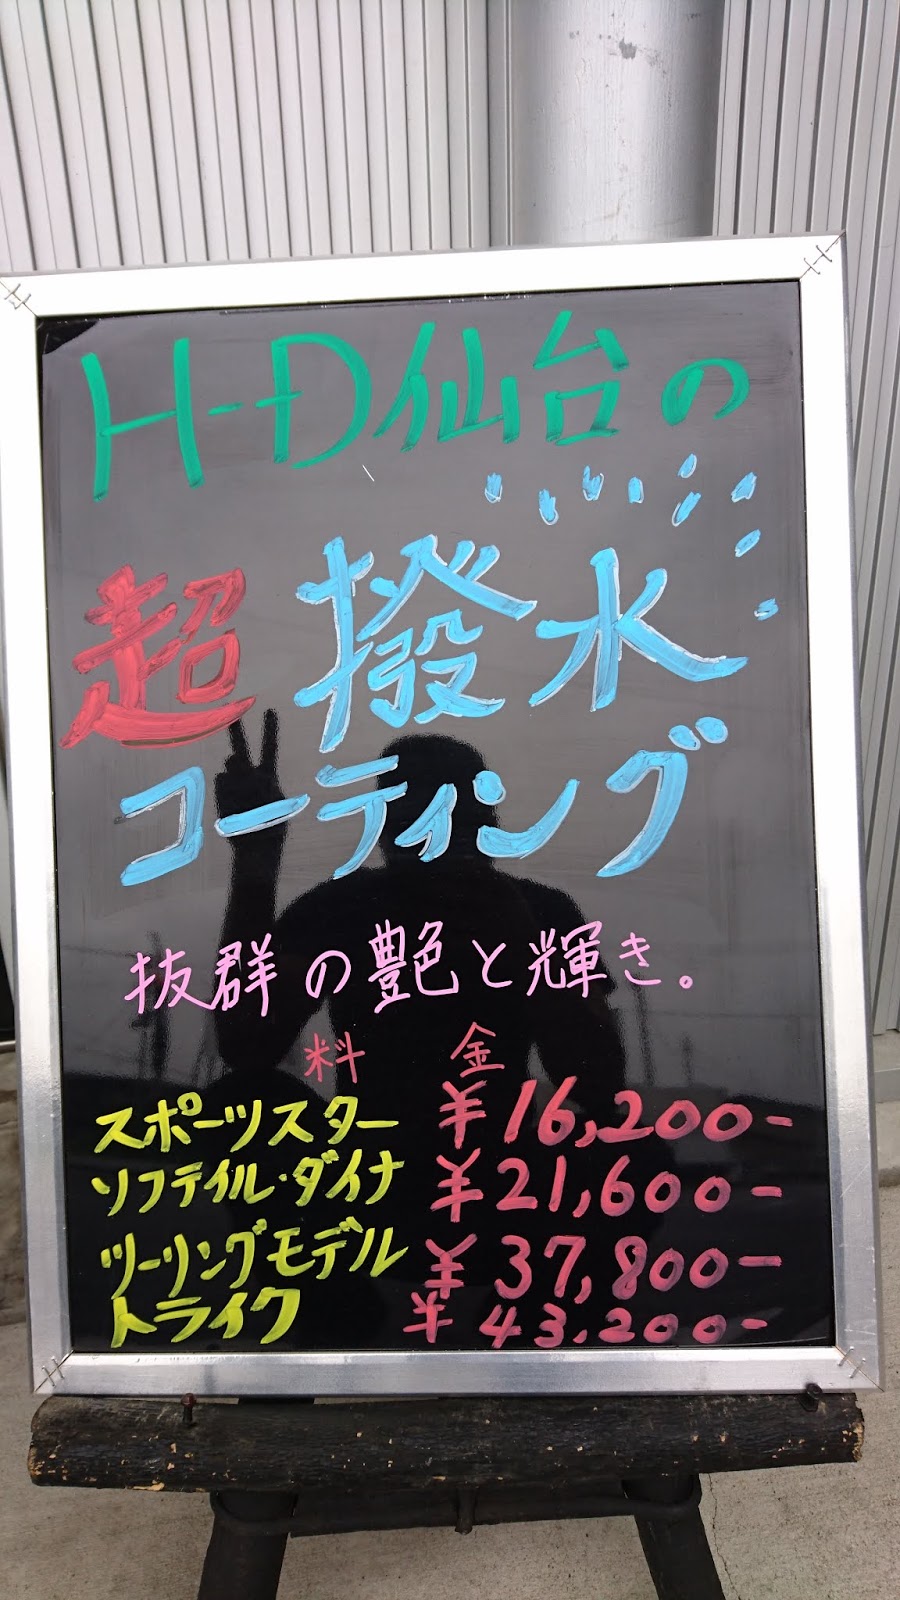 H-D仙台の
超撥水
コーティング
抜群の艶と輝き。
料金
スポーツスター ¥16,200-
ソフテイル・ダイナ ¥21,600-
ツーリングモデル ¥37,800-
トライク ¥43,200-